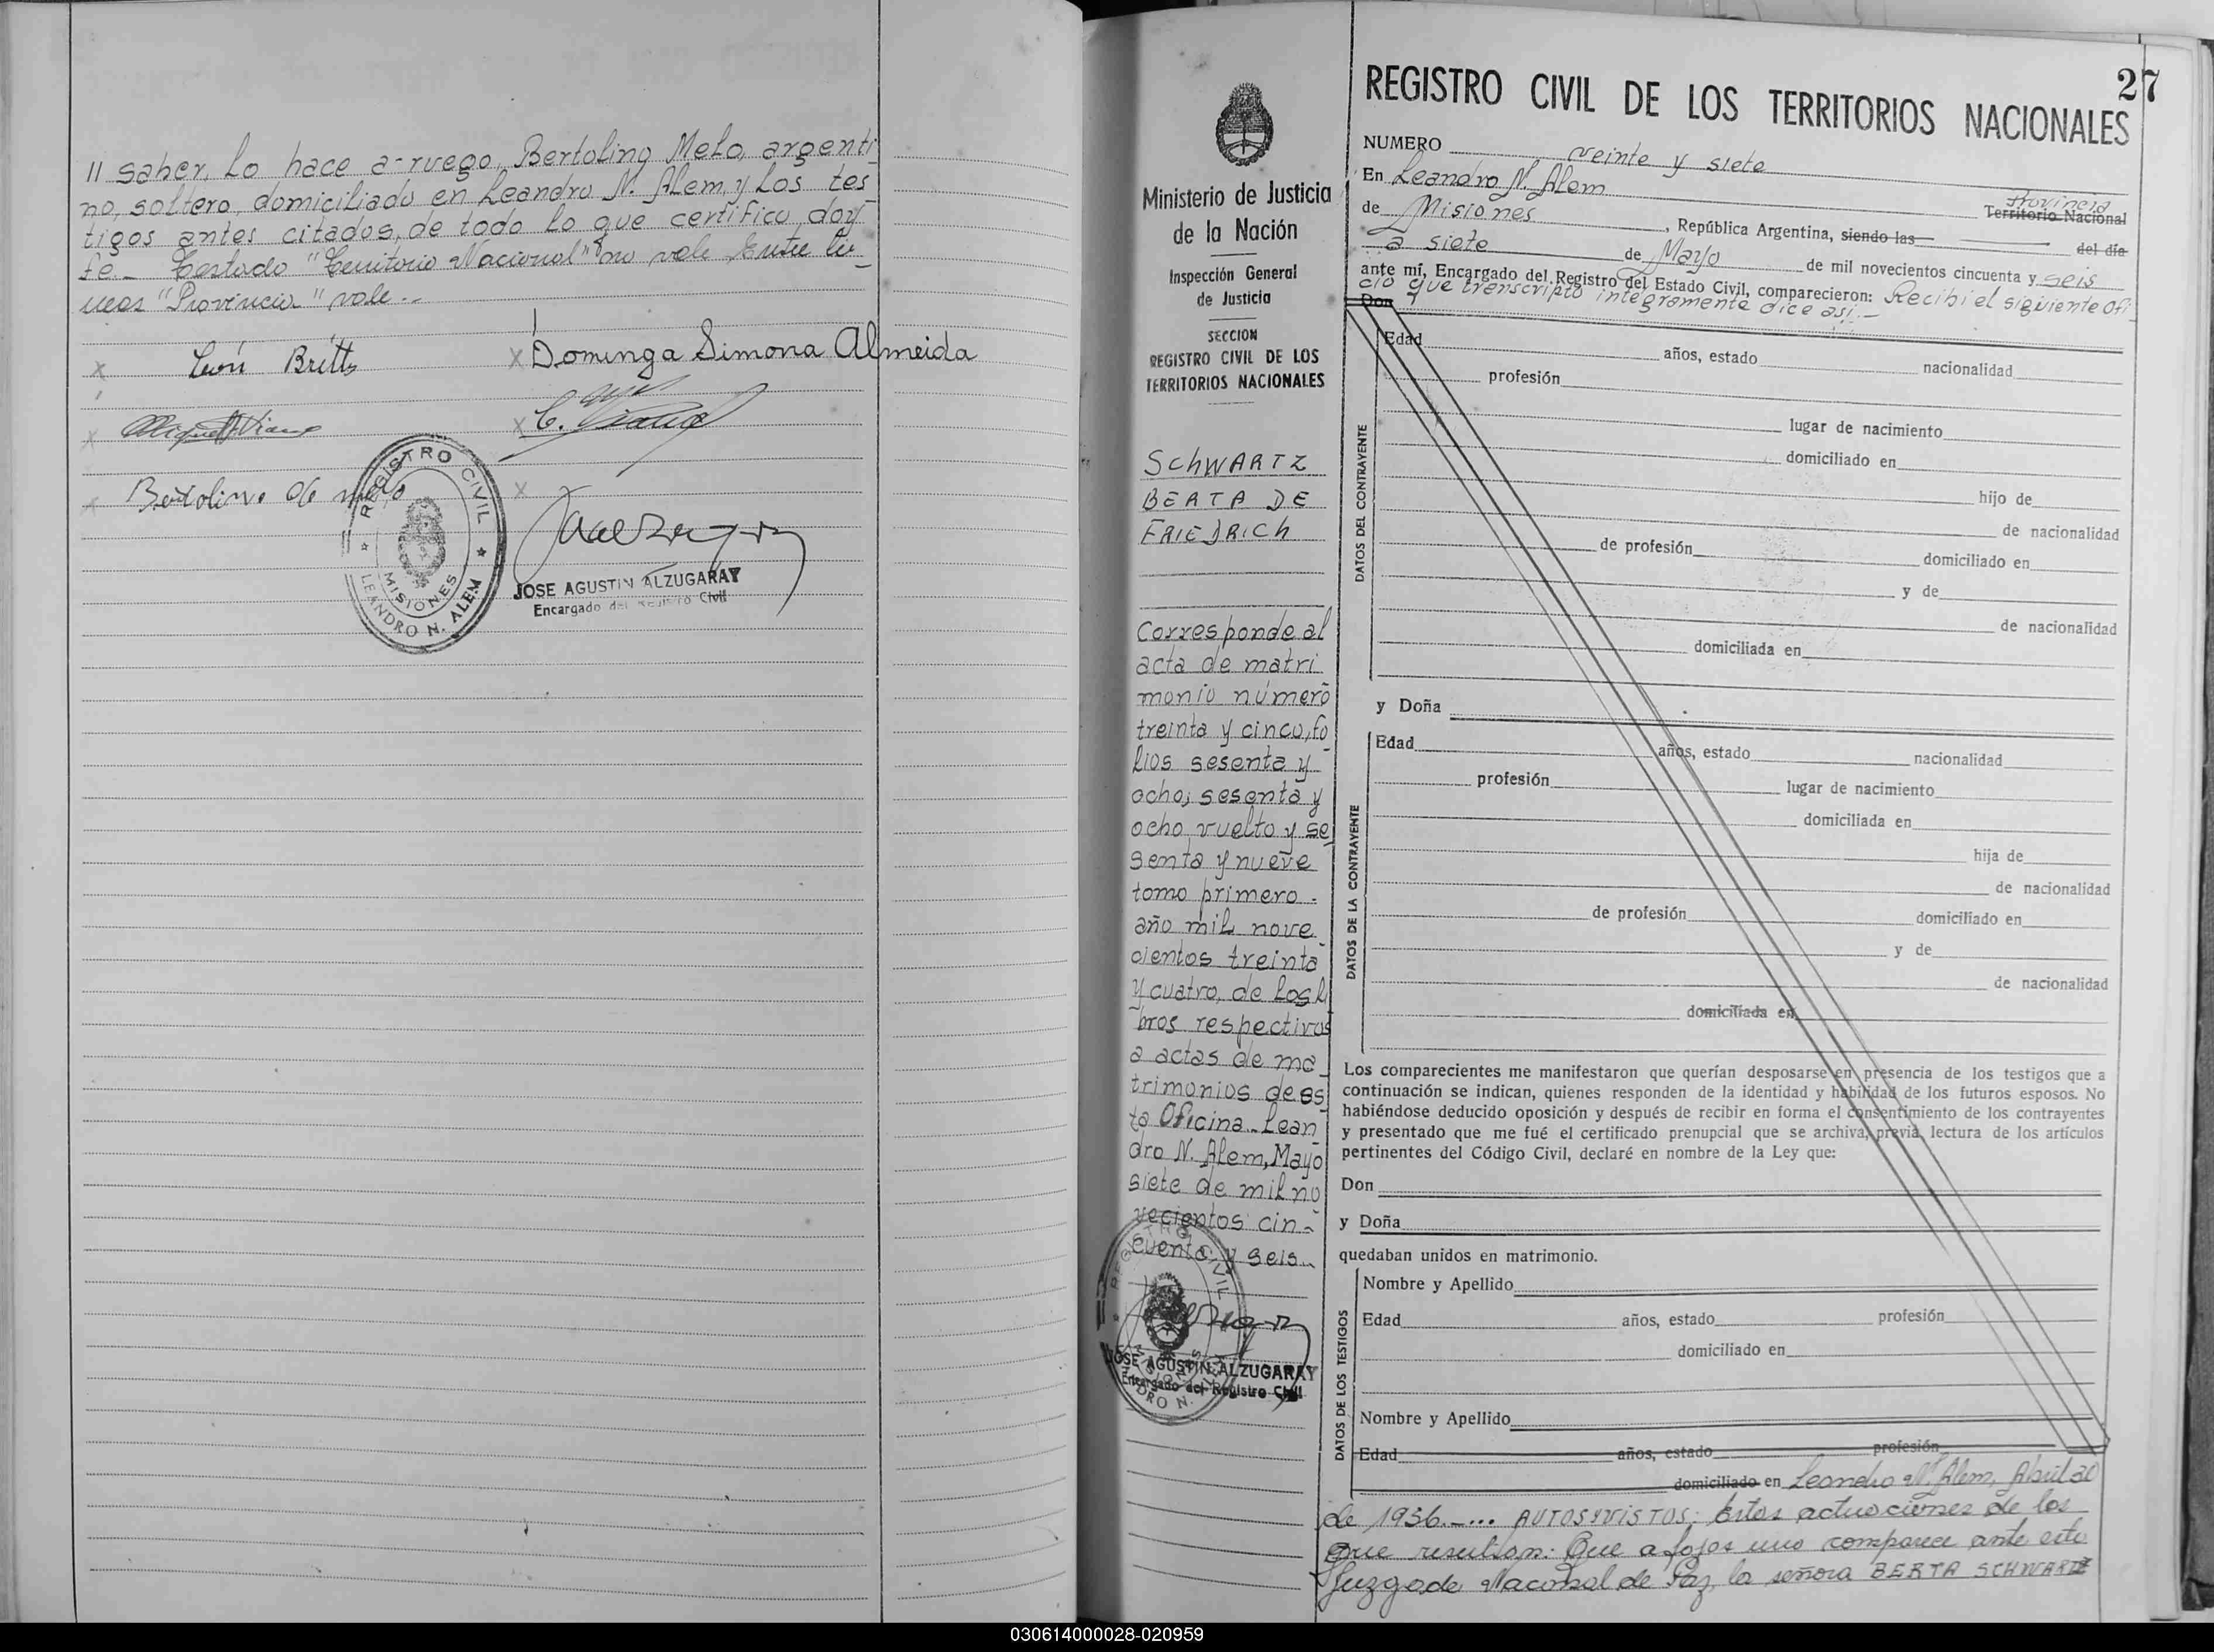 // saber, lo hace a ruego, Bertolino Melo, argenti
no, soltero, domiciliado en Leandro N. Alem, y los tes
tigos antes citados, de todo lo que certifico, doy
fe._ Testado "Territorio Nacional" no vale Entre lí-
neas "Provincia" vale.-
León Britts
x Dominga Simona Almeida
Bertolino de melo
REGISTRO CIVIL
MISIONES
LEANDRO N. ALEM
JOSE AGUSTIN ALZUGARAY
Encargado del Registro Civil
27
Ministerio de Justicia
de la Nación
Inspección General
de Justicia
SECCION
REGISTRO CIVIL DE LOS
TERRITORIOS NACIONALES
SCHWARTZ
BERTA DE
FRIEDRICH
Corresponde al
acta de matri
monio número
treinta y cinco, fo
lios sesenta y
ocho; sesenta y
ocho vuelto y se
senta y nueve
tomo primero.
año mil nove
cientos treinta
y cuatro, de los li
bros respectivos
a actas de ma
trimonios de es
ta Oficina._ Lean
dro N. Alem, Mayo
siete de mil no
vecientos cin-
cuenta y seis._
REGISTRO CIVIL
JOSE AGUSTIN ALZUGARAY
Encargado del Registro Civil
REGISTRO CIVIL DE LOS TERRITORIOS NACIONALES
NUMERO veinte y siete
En Leandro N. Alem Provincia Territorio Nacional
de Misiones, República Argentina, siendo las del día
a siete de Mayo de mil novecientos cincuenta y seis
ante mí, Encargado del Registro del Estado Civil, comparecieron: Recibi el siguiente ofi
cio que transcripto integramente dice asi:-
Don
DATOS DEL CONTRAYENTE
Edad años, estado nacionalidad
profesión
lugar de nacimiento
domiciliado en
hijo de
de nacionalidad
de profesión domiciliado en
y de
de nacionalidad
domiciliada en
y Doña
DATOS DE LA CONTRAYENTE
Edad años, estado nacionalidad
profesión lugar de nacimiento
domiciliada en
hija de
de nacionalidad
de profesión domiciliado en
y de
de nacionalidad
domiciliada en
Los comparecientes me manifestaron que querían desposarse en presencia de los testigos que a
continuación se indican, quienes responden de la identidad y habilidad de los futuros esposos. No
habiéndose deducido oposición y después de recibir en forma el consentimiento de los contrayentes
y presentado que me fué el certificado prenupcial que se archiva, previa lectura de los artículos
pertinentes del Código Civil, declaré en nombre de la Ley que:
Don
y Doña
quedaban unidos en matrimonio.
DATOS DE LOS TESTIGOS
Nombre y Apellido
Edad años, estado profesión
domiciliado en
Nombre y Apellido
Edad años, estado profesión
domiciliado en Leandro N. Alem, Abril 20
de 1956._... AUTOS Y VISTOS: Estas actuaciones de las
que resultan: Que a fojas uno comparece ante este
Juzgado Nacional de Paz, la señora BERTA SCHWARTZ
030614000028-020959